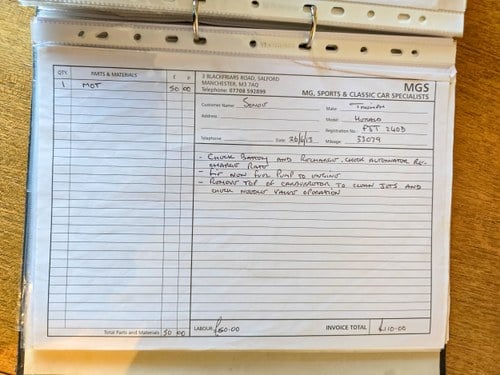 QTY. PARTS & MATERIALS £ P
1 MOT 50 00
Total Parts and Materials 50 00
2 BLACKFRIARS ROAD, SALFORD
MANCHESTER, M3 7AQ
Telephone: 07708 592899
MGS
MG, SPORTS & CLASSIC CAR SPECIALISTS
Customer Name: Make: TRIUMPH
Address Model: HERALD
Registration No. FST 240D
Telephone Date: 20/6/13 Mileage: 33079
- CHECK BATTERY AND RECHARGE, CHECK ALTERNATOR RE-
CHARGE RATE
- FIT NEW FUEL PUMP TO ENGINE
- REMOVE TOP OF CARBURETTOR TO CLEAN JETS AND
CHECK NEEDLE VALVE OPERATION
LABOUR £60-00 INVOICE TOTAL £110-00